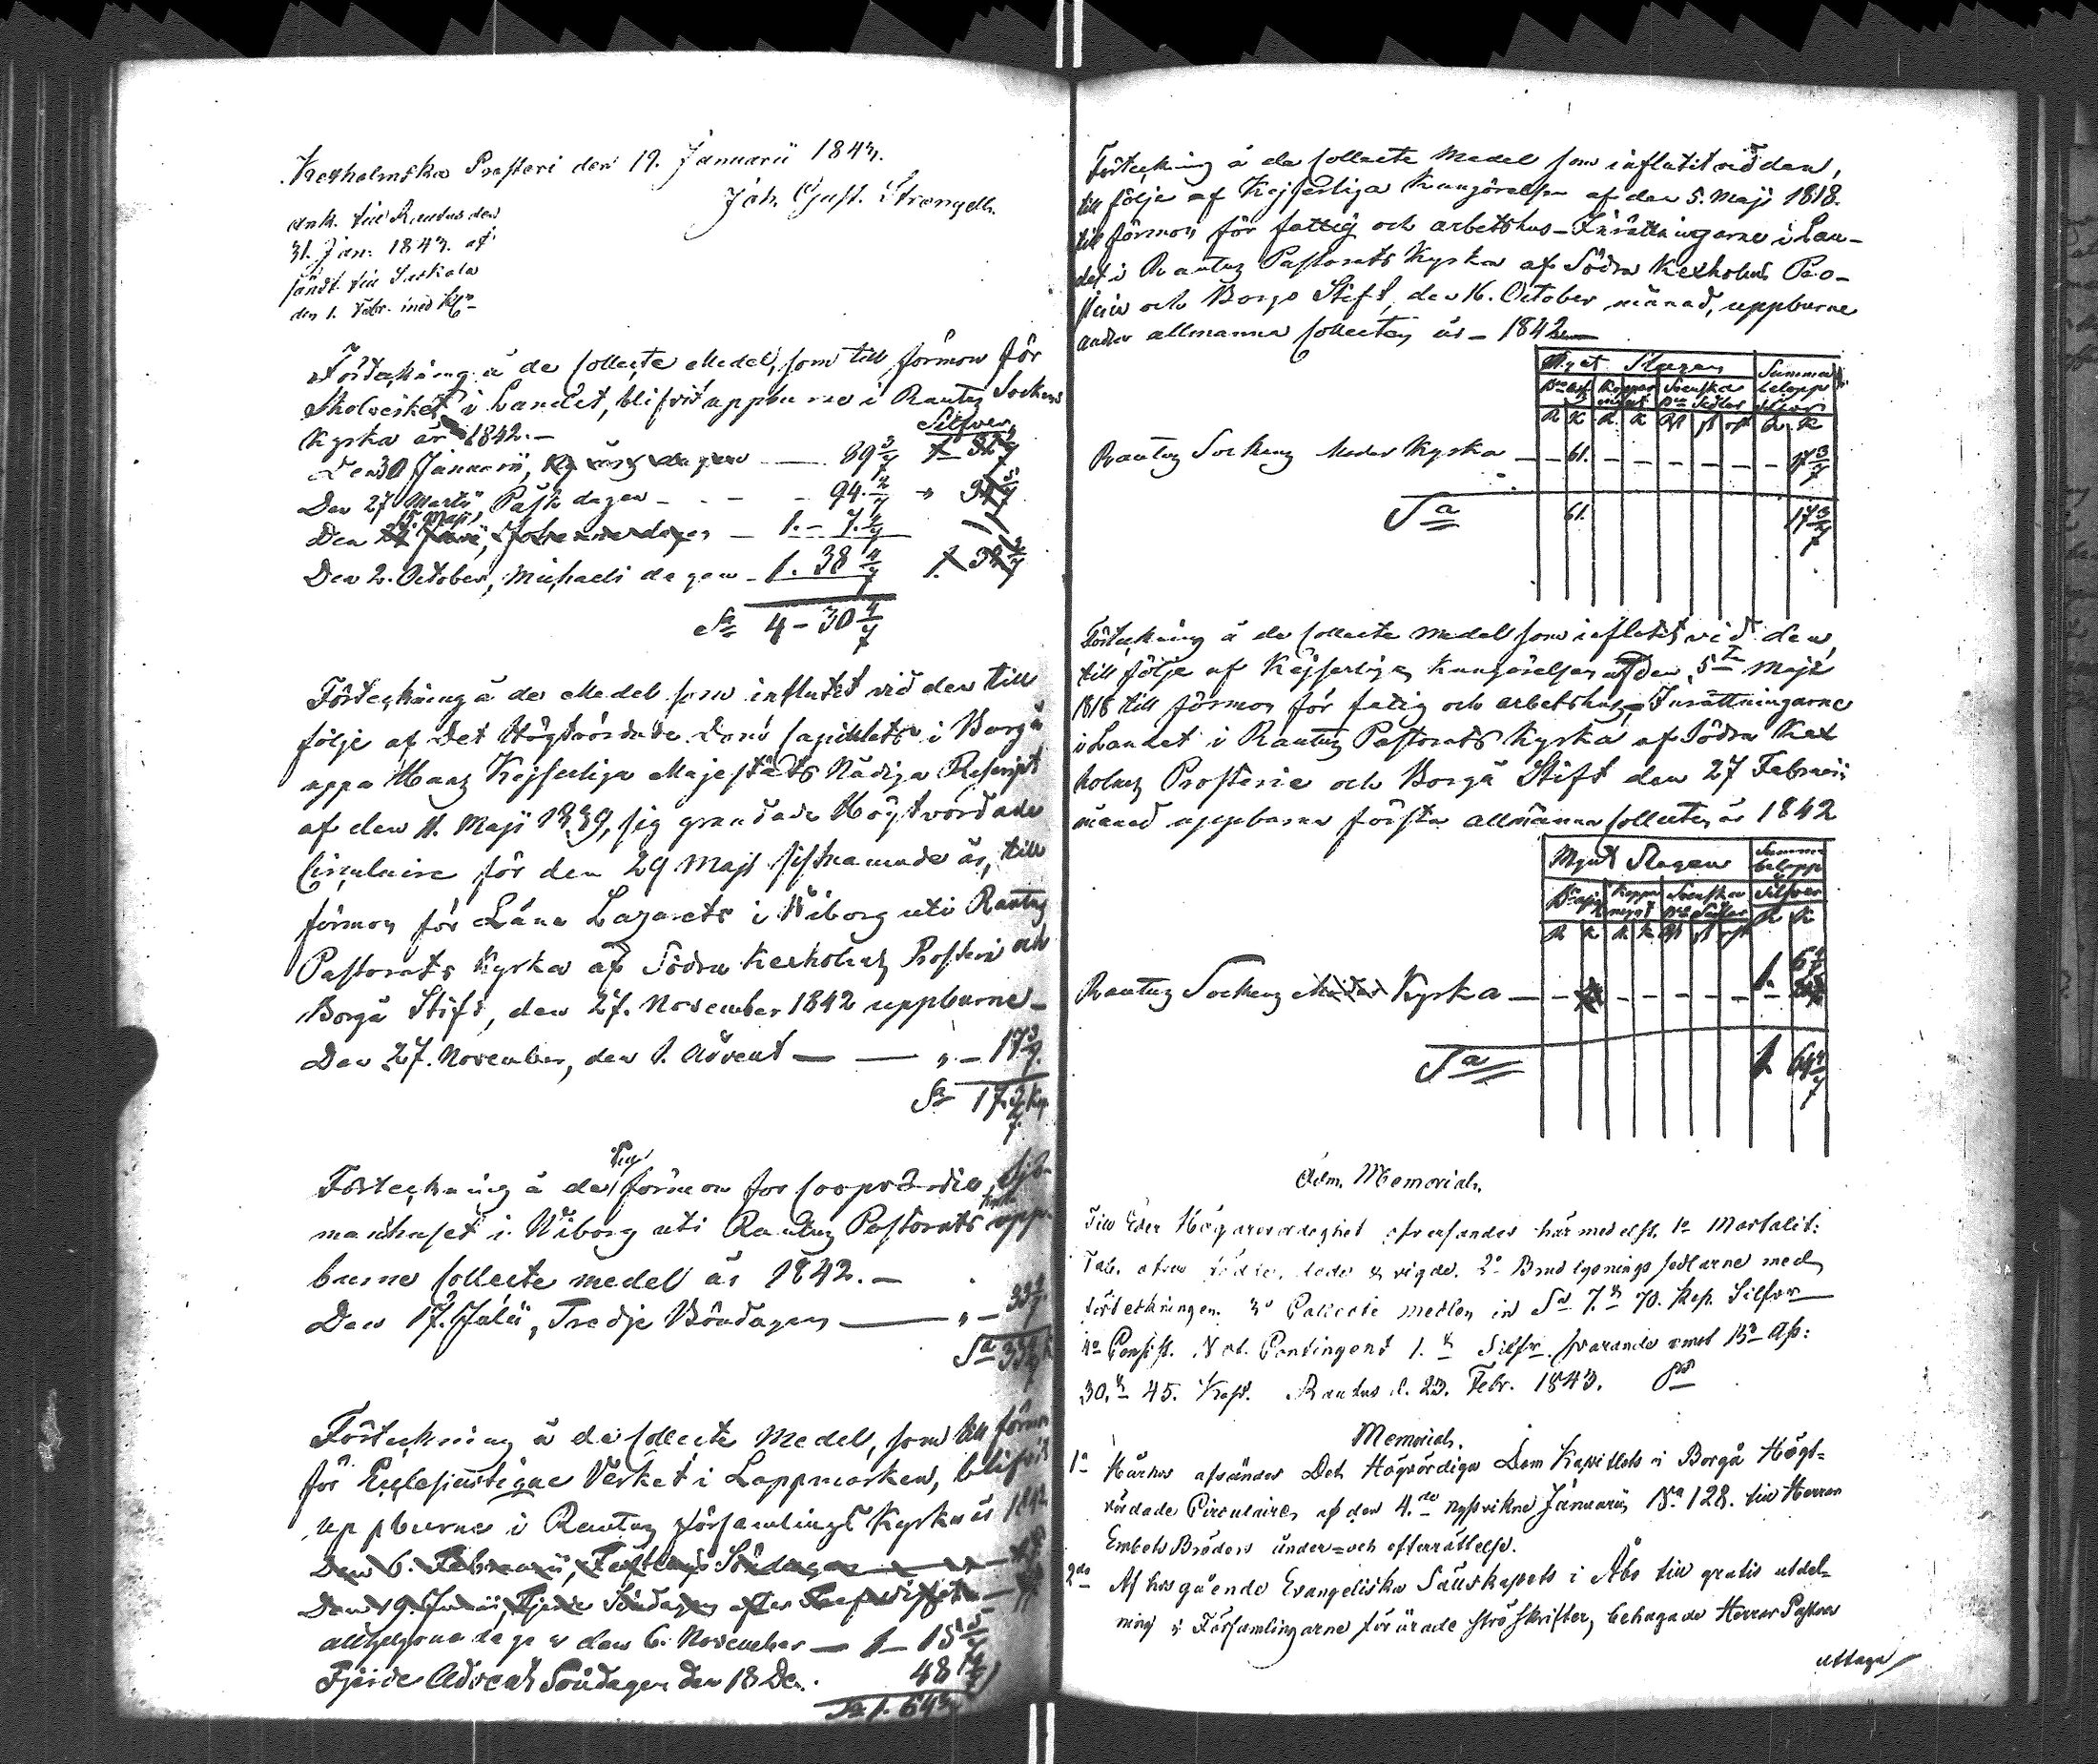 Kexholmska Prosteri den 19. Januarii 1843.
Joh. Gust. Strengell.
Ank. till Rautus den
31. Jan. 1843. af-
sändt till Sackola
den 1. Febr. med
Förteckning å de Collecte Medel, som till förmon för
Skolverket i Landet, blifvit uppburne i Rautus Sockens
Kyrka år 1842.—
Silfver
Den 30 Januarii, — 89 3/7
Den 27 Martii Påsk dagen — 94 2/7
15 Maji
Den — 1.— 7 4/7
Den 2. October, Michaeli dagen — 1. 38 4/7
Sa 4—30 4/7
Förteckning å de Medel som influtit vid den till
följe af Det Högtvördade Dom Capittlets i Borgå
uppå Hans Kejserliga Majestäts Nådiga Rescript
af den 11. Maji 1839, sig grundade Högtvördade
Circulaire för den 29 Maji sistnämnde år, till
förmon för Läns Lazarets i Wiborg uti Rautus
Pastorats Kyrka af Södra Kexholms Prosteri och
Borgå Stift, den 27. November 1842 uppburne—
Den 27. November, den 1. Advent — — " — 17 3/7
Sa 17 3/7 Kop.
Förteckning å de till förmon för Coopvardie Sjö-
manhuset i Wiborg uti Rautus Pastorats Kyrka upp-
burne Collecte medel år 1842.—
Den 17. Julii, Tredje Böndagen — " —
Sa
Förteckning å de Collecte Medel, som till förmon
för Ecclesiastique Verket i Lappmarken, blifvit
uppburne i Rautus församlings Kyrka år 1842
Den 6. Februarii, Söndagen
Den 19. Junii, Söndagen efter
allhelgona dagen den 6. November — 1— 15 5/7
Fjerde Advents Söndagen den 18 De. 48
Sa 1. 64
Förteckning å de Collecte Medel som influtit vid den,
till följe af Kejserliga Kungörelsen af den 5. Maji 1818.
till förmon för fattig och arbetshus-Inrättningarne i Lan-
det i Rautus Pastorats Kyrka af Södra Kexholms Pro-
sterie och Borgo Stift, den 16. October månad, uppburne
andra allmänna Collecten år — 1842
Mynt Slagen Summa
Bco ass Koppar mynt Svenska Rdr Sedlar belopp silfver
R K R K Rd sk rst R K
Rautus Sockens Moder Kyrka — — 61. — — — — — — 17 3/7
Sa 61. 17 3/7
Förteckning å de Collecte Medel som influtit vid den,
till följe af Kejserliga Kungörelsen af den 5 Maji
1818 till förmon för fatig och arbetshus-Inrättningarne
i Landet i Rautus Pastorats Kyrka af Södra Kex
holms Prosterie och Borgå Stift den 27 Februarii
månad uppburna första allmänna Collecten år 1842
Mynt Slagen Summa belopp
Bco ass Koppar mynt Svenska Rdr Sedlar Silfver
R K R K Rd sk rst R K
Rautus Sockens Moder Kyrka — — — — — — — 1.
Sa 1. 64
Ödm. Memorial.
Till Eder Högarevördighet öfversändes härmedelst. 1o Mortalit:
Tab. öfver födde, döde & vigde. 2o Brudvignings sedlarne med
förteckningen. 3o Collecte medlen in Sa 7. R 70. Kop. Silfver—
4o Consist. Not. Contingent 1. R Silfvr. svarande emot Bco Ass:
30. R 45. Kop. Rautus d. 23. Febr. 1843.
Memorial.
1o Härhos afsändes Det Högvördiga Dom Kapittlets i Borgå Högt=
vördade Circulaire af den 4.de nystvikne Januarii No 128. till Herrar
Embets Bröders under= och efterrättelse.
2do Af hosgående Evangeliska Sällskapets i Åbo till gratis utdel=
ning i Församlingarne förärade ströskrifter, behagade Herrar Pastorer
uttaga